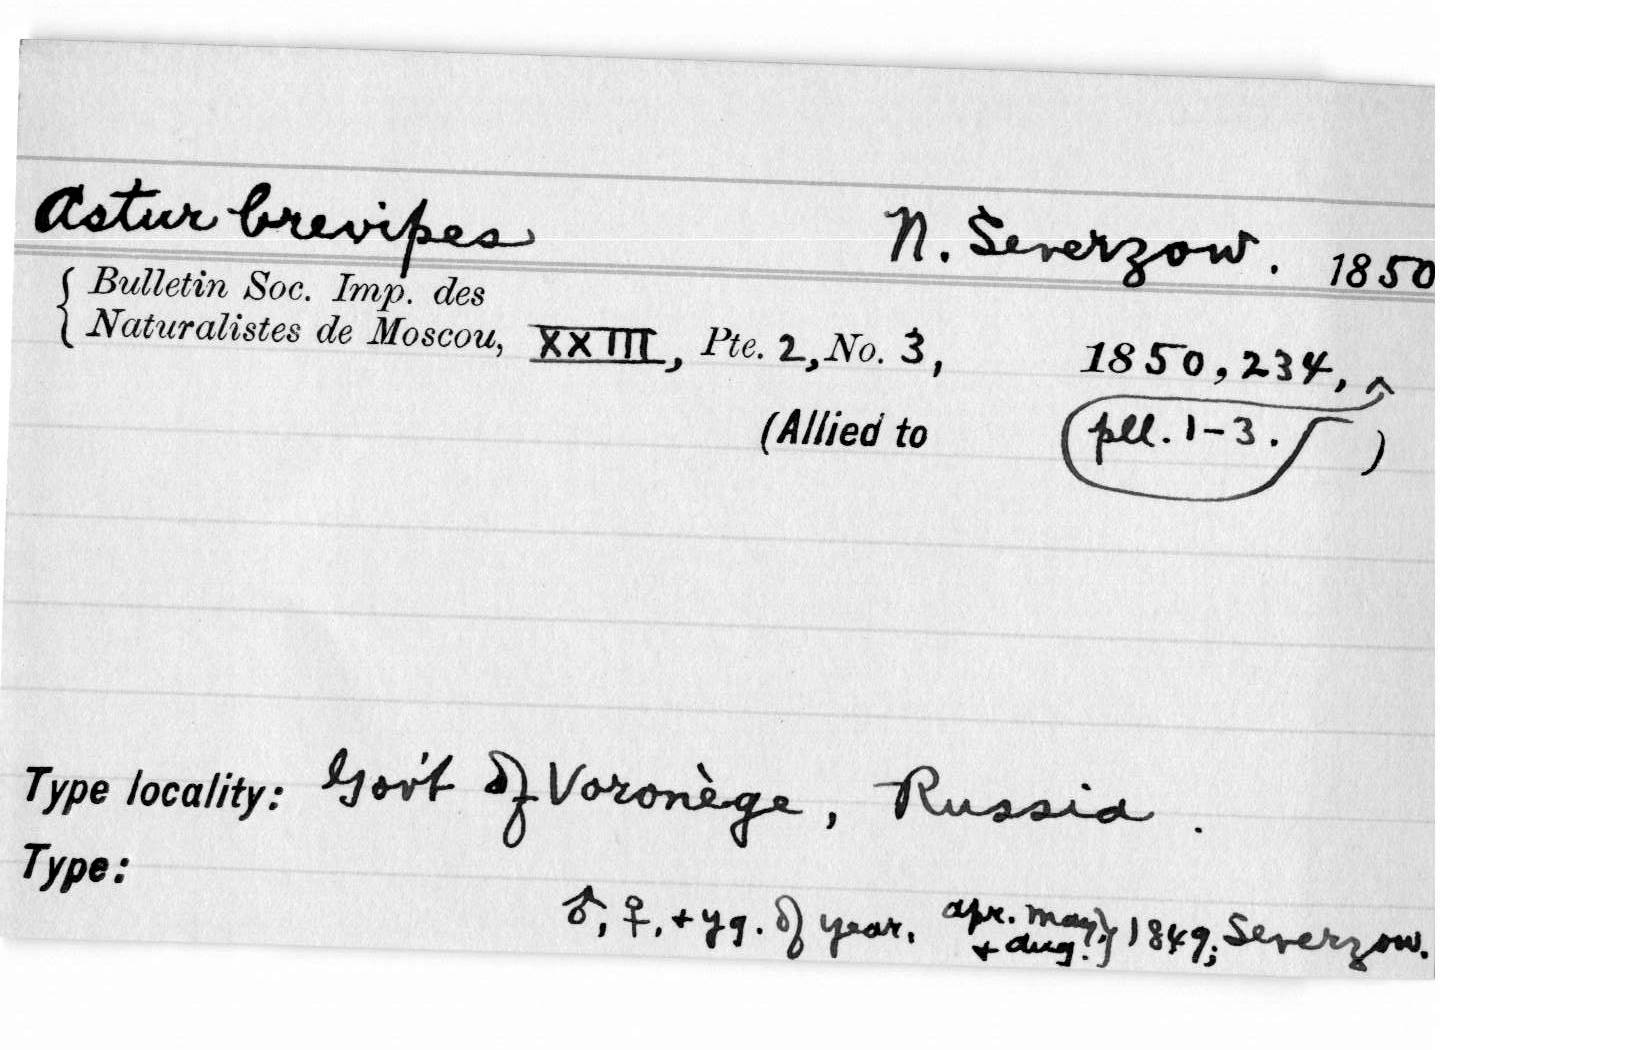 Astur brevipes N. Severzow. 1850
Bulletin Soc. Imp. des
Naturalistes de Moscou, XXIII, Pte. 2, No. 3, 1850, 234,
(Allied to pll. 1-3. )
Type locality: Gov't of Voronège, Russia.
Type:
♂, ♀, + yg. of year, Apr. May, + Aug. } 1849; Severzow.